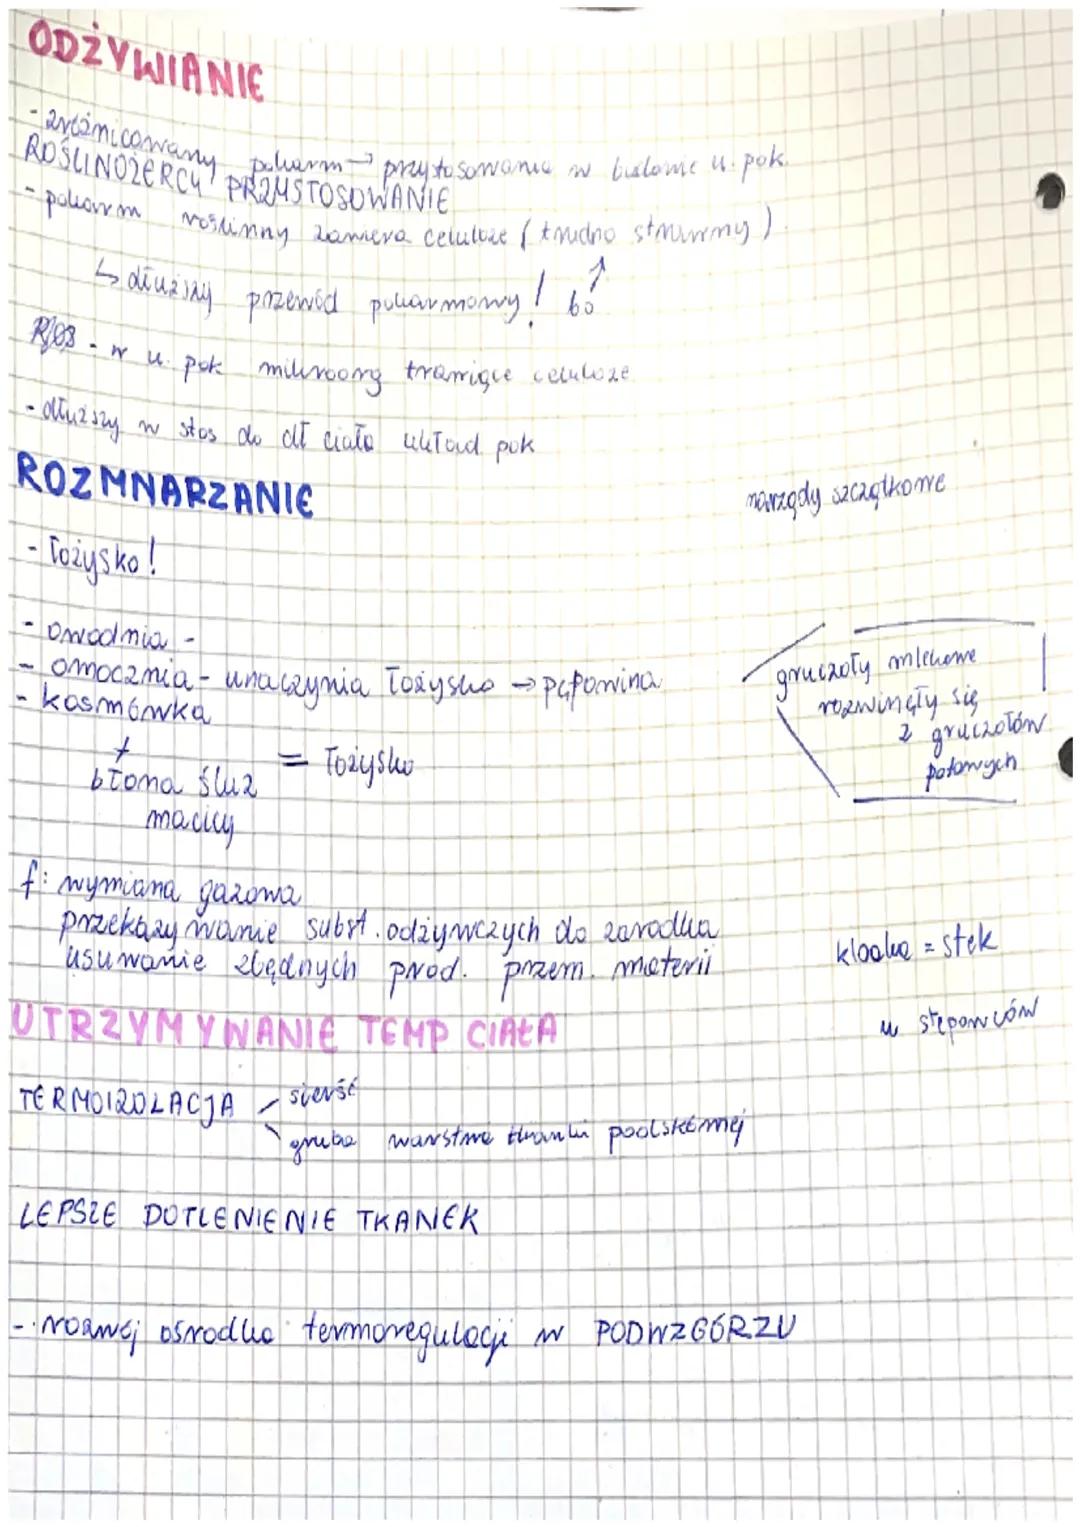 ODŻYWIANIE
- zróżnicowany pokarm → przystosowania w budowie u. pok.
ROŚLINOŻERCY PRZYSTOSOWANIE
- pokarm roślinny zawiera celulozę (trudno strawny)
↳ dłuższy przewód pokarmowy! bo ↑
- w u. pok mikroorg trawiące celulozę
- dłuższy w stos do dł ciała układ pok
ROZMNARZANIE
narządy szczątkowe
- łożysko!
- owodnia -
- omocznia - unaczynia łożysko → pępowina
- kosmówka
+
błona śluz
macicy
= łożysko
gruczoły mlekowe
rozwinęły się
z gruczołów
potowych
f: wymiana gazowa
przekazywanie subst. odżywczych do zarodka
usuwanie zbędnych prod. przem. materii
kloaka = stek
u stepowców
UTRZYMYWANIE TEMP CIAŁA
TERMOIZOLACJA
sierść
gruba warstwa tkanki podskórnej
LEPSZE DOTLENIENIE TKANEK
- rozwój ośrodka termoregulacji w PODWZGÓRZU